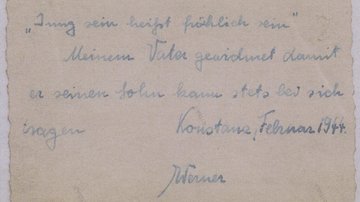 „Jung sein heißt fröhlich sein"
Meinem Vater gewidmet damit
er seinen Sohn kann stets bei sich
tragen Konstanz, Februar 1944.
Werner